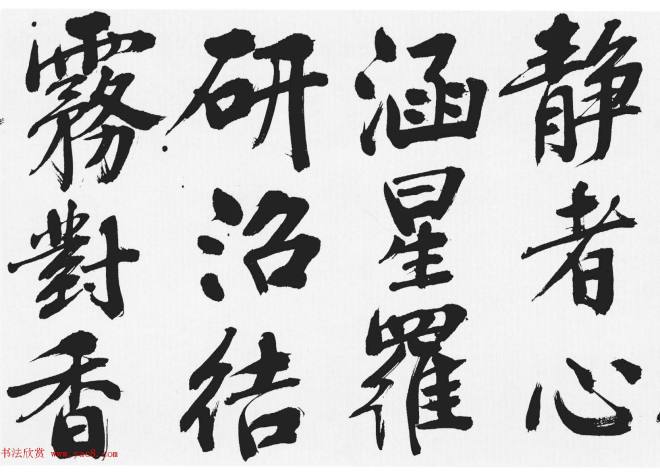 静者心
涵星羅
研沼结
霧對香
书法欣赏 www.yac8.com